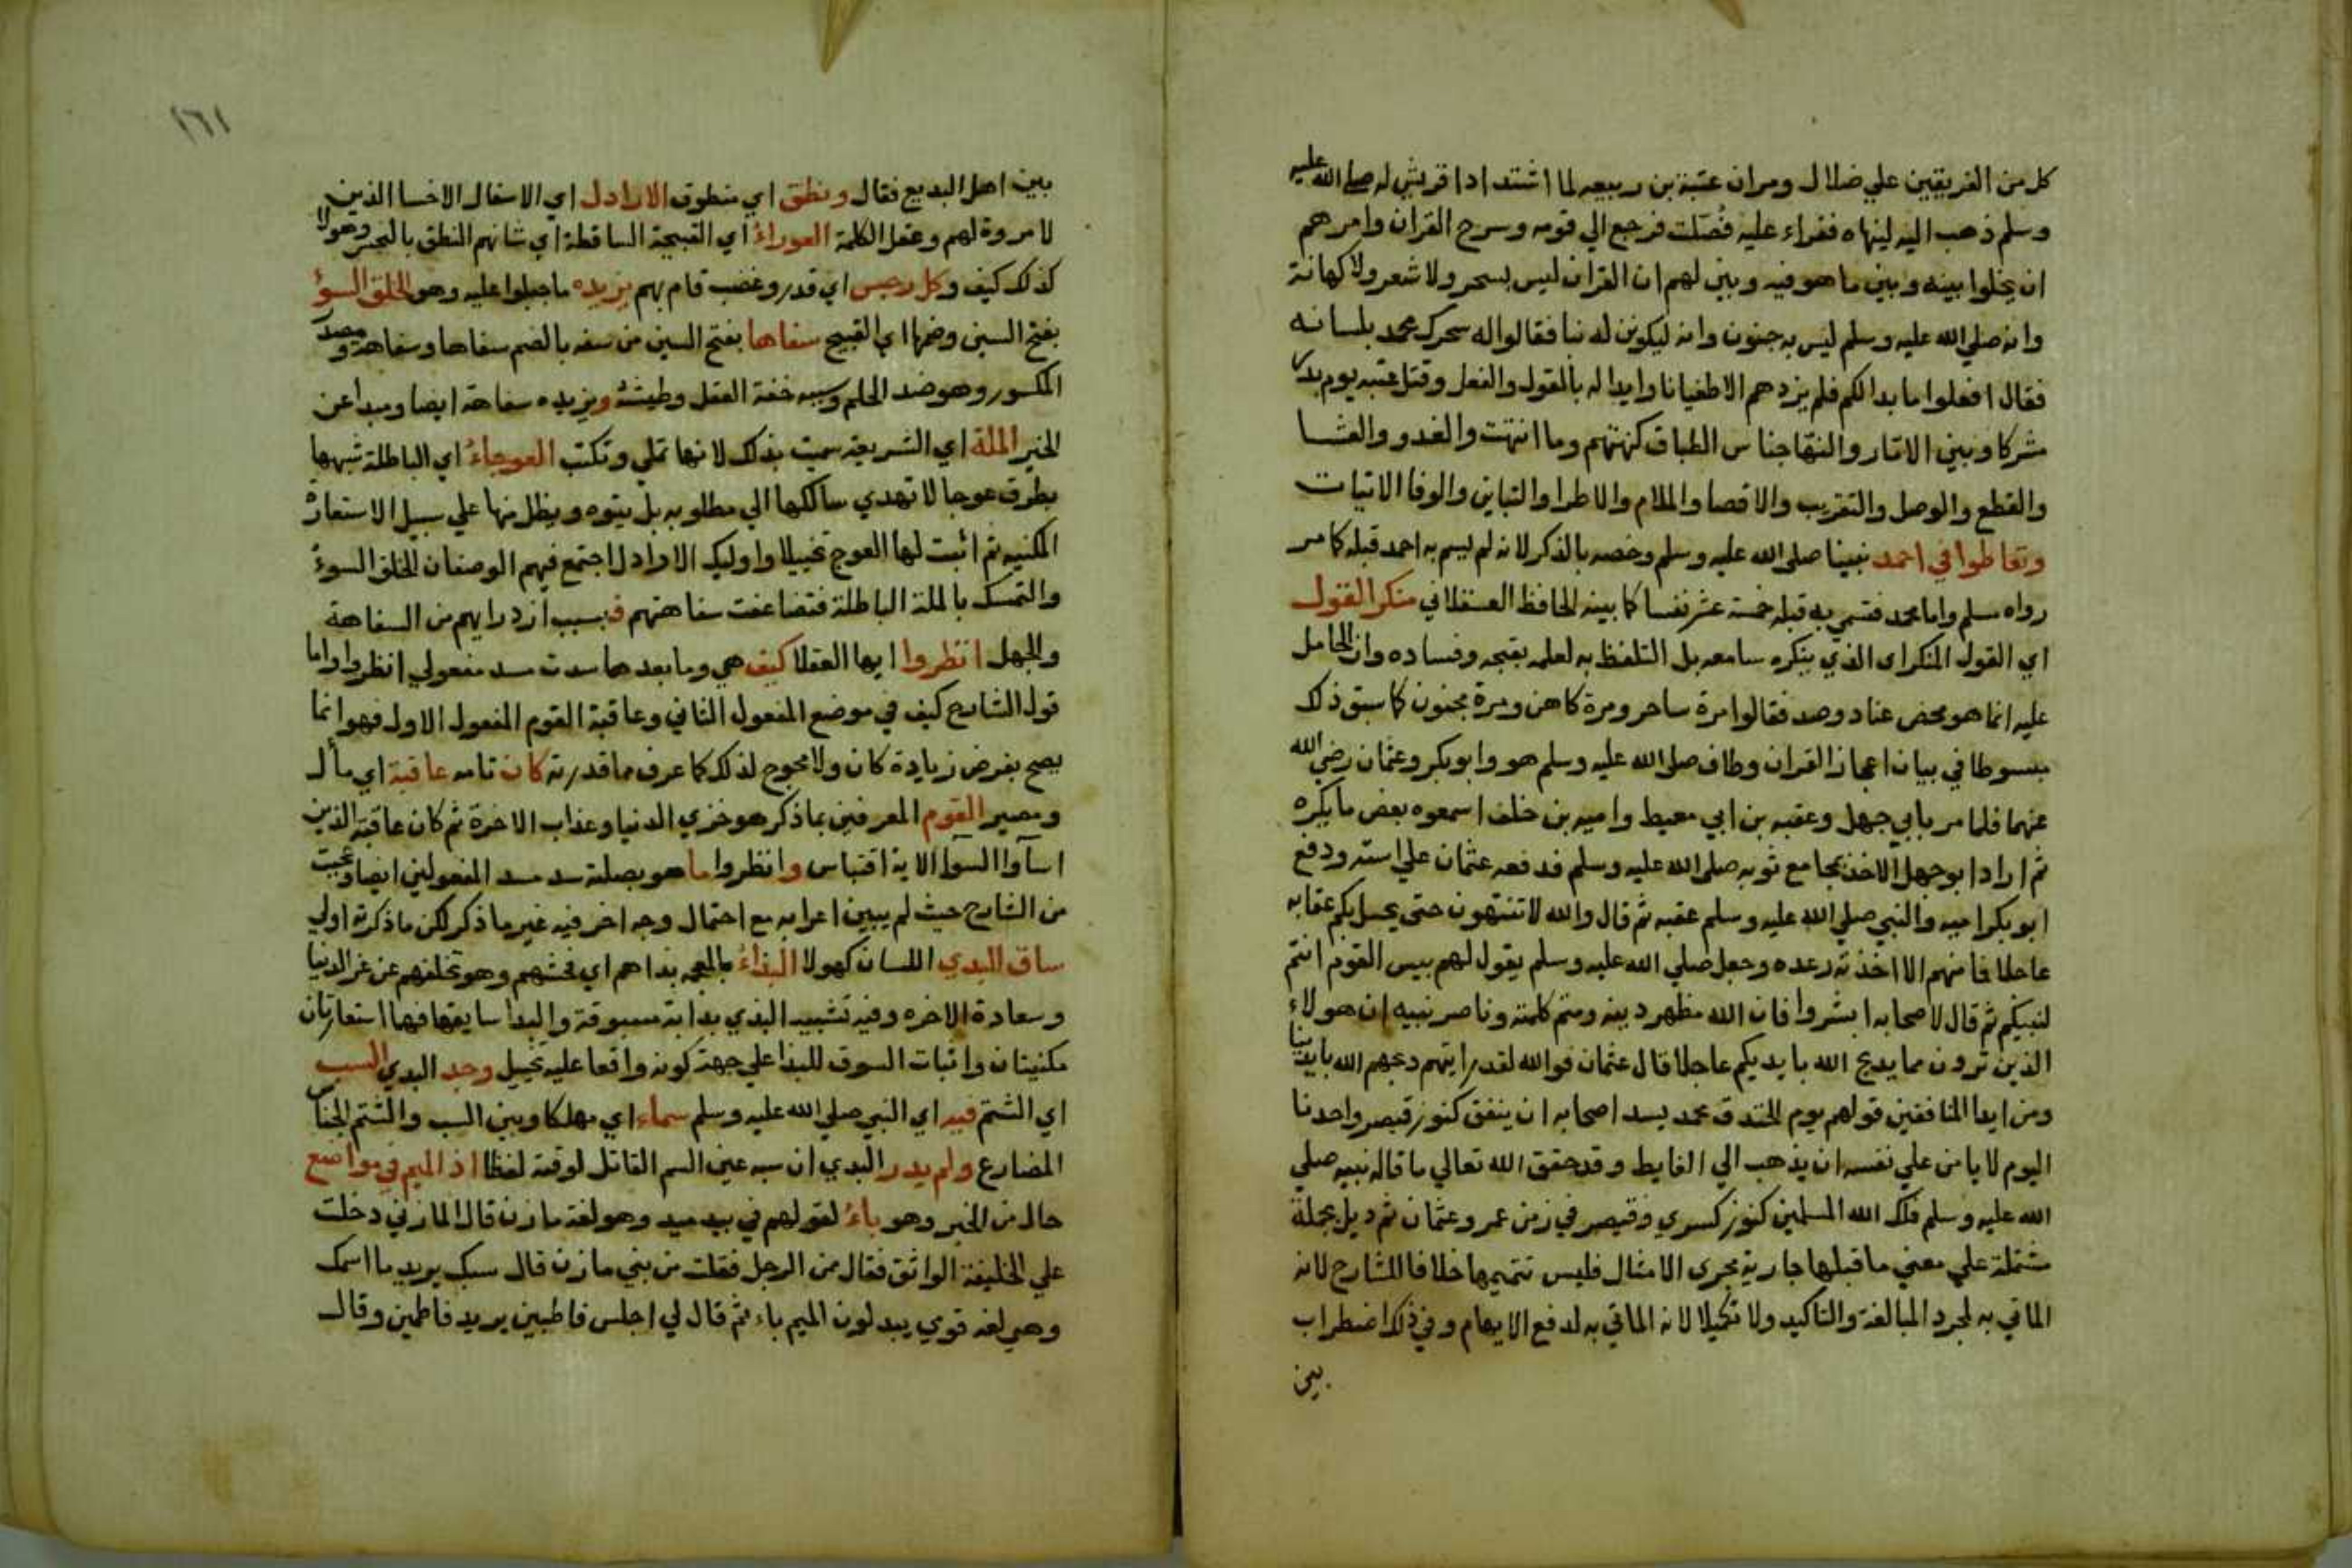 كل من الفريقين علي ضلال ومران عتبة بن ربيعه لما اشتد اذا قريش له صلى الله عليه
وسلم ذهب اليه لينهاه فقراء عليه فصّلت فرجع الي قومه وسرح القران وامرهم
ان يخلوا بينه وبين ما هو فيه وبين لهم ان القران ليس بسحر ولا شعر ولا كهانة
وانه صلي الله عليه وسلم ليس به جنون وانه ليكونن له نبا فقالوا له سحرك محمد بلسانه
فقال افعلوا ما بدا لكم فلم يزدهم الا طغيانا وايدا له بالقول والفعل وقتل عتبه يوم بدر
مشركا وبين الاتار والنقاجناس الطباق كهنتهم وما انتهت والغدو والعشا
والقطع والوصل والتقريب والاقصا والملام والاطرا والتباين والوفا الاتيات
وتعاطوا في احمد نبينا صلى الله عليه وسلم وخصه بالذكر لانه لم يسم به احمد قبله كما مر
رواه سلم واما محمد فتسمي به قبله خمسة عشر نفسا كما بينه الحافظ العسقلاني منكر القول
اي القول المنكر اى الذي ينكره سامعه بل التلفظ به لعلمه بقبحه وفساده وان الحامل
عليه انما هو محض عناد وصد فقالوا مرة ساحر ومرة كاهن ومرة مجنون كما سبق ذلك
مبسوطا في بيان اعجاز القران وطاف صلى الله عليه وسلم هو وابو بكر وعثمان رضي الله
عنهما فلما مر بابي جهل وعقبه بن ابي معيط واميه بن خلف اسمعوه بعض ما يكره
ثم اراد ابوجهل الاخذ بمجامع ثوبه صلى الله عليه وسلم فدفعه عثمان علي استه ودفع
ابو بكر اميه والنبي صلي الله عليه وسلم عقبه ثم قال والله لا تنتهون حتى يحل بكم عقابه
عاجلا فما منهم الا اخذته رعده وجعل صلي الله عليه وسلم يقول لهم بيس القوم انتم
لنبيكم ثم قال لاصحابه ابشروا فان الله مظهر دينه ومتم كلمته وناصر نبيه ان هولاء
الذين ترون مما يذبح الله بايديكم عاجلا قال عثمان فوالله لقد رايتهم ذبحهم الله بايدينا
ومن ايدا المنافقين قولهم يوم الخندق محمد يسد اصحابه ان ينفق كنوز قيصر واحدنا
اليوم لا يامن علي نفسه ان يذهب الي الغايط وقد حقق الله تعالي ما قاله نبيه صلي
الله عليه وسلم فملك الله المسلمين كنوز كسري وقيصر في زمن عمر وعثمان ثم ديل بجملة
مشتملة علي معني ما قبلها جارية مجرى الامثال فليس تتميمها خلافا للشارح لانه
الماتي به لمجرد المبالغة والتاكيد ولا تكميلا لانه الماتي به لدفع الايهام وفي ذلك اضطراب
بين
١٦١
بين اهل البديع فقال ونطق اي منطوق الاراذل اي الاسفال الاخسا الذين
لا مروة لهم وعقل الكلمة العوراءُ اي القبيحة الساقطة اي شانهم النطق بالهجر وهولا
كذلك كيف وكل رجس اي قذر وغضب قام بهم يزيده ما جبلوا عليه وهو الخلق السوءُ
بفتح السين وضمها اي القبيح سفاها بفتح السين من سفه بالضم سفاها وسفاهة ومصدر
المكسور وهو ضد الحلم وسببه خفة العقل وطيشه ويزيده سفاهة ايضا ومبداعن
الخير الملة اي الشريعة سميت بذلك لانها تملي وتكتب العوجاءُ اي الباطلة شبهها
بطرق عوجا لا تهدي سالكها الي مطلوبه بل يتوه ويظل منها علي سبيل الاستعارة
المكنيه ثم اثبت لها العوج تخييلا واوليك الاراذل اجتمع فيهم الوصفان الخلق السوءُ
والتمسك بالملة الباطلة فتضاعفت سفاهتهم فبسبب ازدرايهم من السفاهة
والجهل انظروا ايها العقلا كيف هي وما بعدها سدت مسد مفعولي انظروا واما
قول الشارح كيف في موضع المفعول الثاني وعاقبة القوم المفعول الاول فهو انما
يصح بفرض زيادة كان ولا محوج لذلك كما عرف مما قدرته كان تامه عاقبة اي مأل
ومصير القوم المعرفين بما ذكر هو خزي الدنيا وعذاب الاخرة ثم كان عاقبة الذين
اسآوا السوآ الاية اقتباس وانظروا ما هو بصلته سد مسد المفعولين ايضا وعجبت
من الشارح حيث لم يبين اعرابه مع احتمال وجه اخر فيه غير ما ذكر لكن ما ذكرته اولي
ساق للبدي اللسان كهولا البذاءُ بالمعجه بذاهم اي فحشهم وهو تخلفهم عن عز الدنيا
وسعادة الاخره وفيه تشبيه البذي بدابة مسوقة والبذا سايقها ففيها استعارتان
مكنيتان واثبات السوق للبذا علي جهة كونه واقعا عليه تخييل وجد البدي السب
اي الشتم فيه اي النبي صلي الله عليه وسلم سماء اي مهلكا وبين السب والشتم الجناس
المضارع ولم يدر البدي ان سبه عين السم القاتل لوقته لفظا اذ الميم في مواضع
حال من الخبر وهو باءُ لقولهم في بيد ميد وهو لغة مازن قال المازني دخلت
علي الخليفة الواثق فقال من الرجل فقلت من بني مازن قال سبك يريد ما اسمك
وهي لغه قوي يبدلون الميم باء ثم قال لي اجلس فاطبين يريد فاطمين وقال